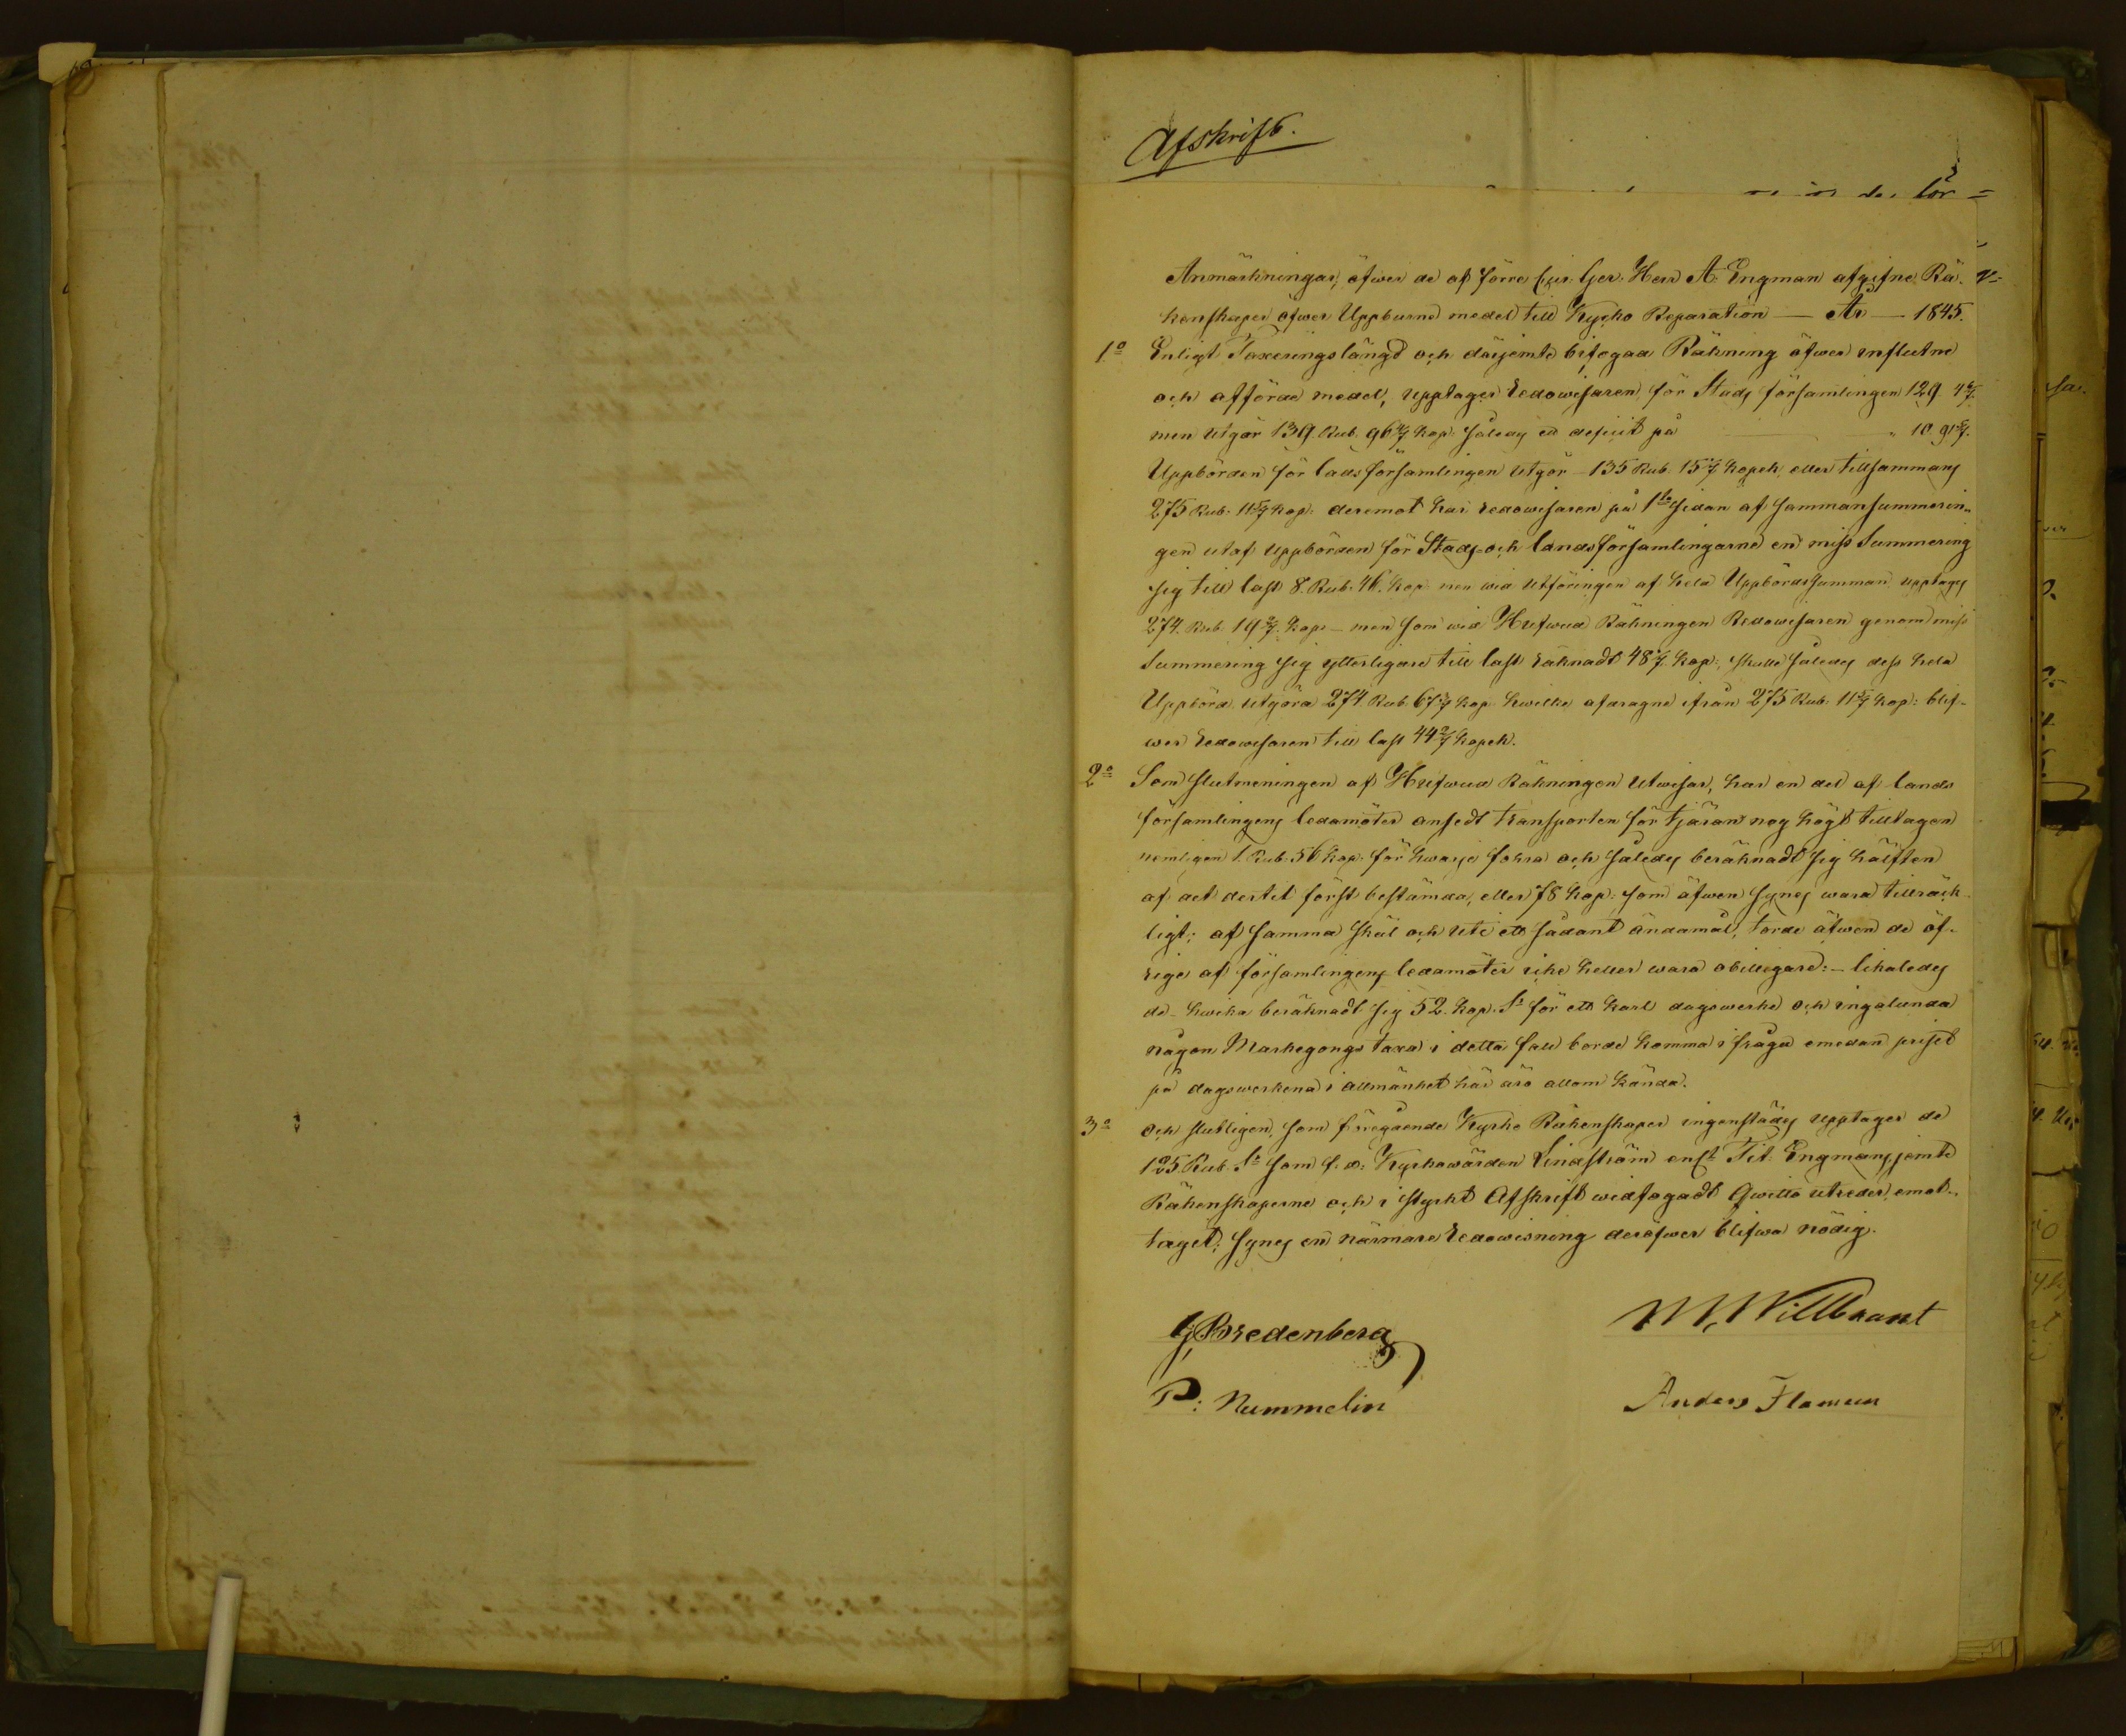 Afskrift.
för
Anmärkningar, öfwer de af förre Herr A. Engman afgifne Rä-
kenskaper öfwer Uppburne medel till Kyrko Reparation — År — 1845.
1o Enligt Taxeringslängd och därjemte bifogad Räkning öfwer influtne
och afförde medel, upptager Redowisaren för Stads församlingen 129. 4 6/7.
men utgör 139. Rub. 96 Kop. Således en deficit på „ 10. 91 5/7.
Uppbörden för lads församlingen utgör — 135 Rub. 15 Kopek, eller tillsammans
275 Rub. 11 5/7 Kop: deremot har redowisaren på 1sta sidan af sammansummerin„
gen utaf uppbörden för Stads- och landsförsamlingarne en miss Summering
sig till last 8. Rub. 46. Kop men wid utföringen af hela Uppbördssumman upptages
274. Rub. 19 2/7. Kop: — men som wid Hufwud Räkningen Redowisaren genom miss
Summering sig ytterligare till last räknadt 48 /7. Kop:, skulle således dess hela
Uppbörd utgöra 274. Rub. 67 3/7 Kop. hwilka afdragne ifrån 275 Rub. 11 5/7 Kop: blif-
wer Redowisaren till last 44 2/7 Kopek.
2o Som slutmeningen af Hufwud Räkningen utwisar, har en del af lands
församlingens ledamöter ansedt transporten för tjäran nog högt tilltagen
nemligen 1. Rub. 56 Kop. för hwarje fohra och således beräknadt sig hälften
af det dertil först bestämda, eller 78 Kop. som äfwen synes wara tillräck
ligt; af samma skäl och uti ett sådant ändamål, torde äfwen de öf-
rige af församlingens ledamöter icke heller wara obilligare: — likaledes
de hwilka beräknadt sig 52. Kop. Sr för ett karl dagswerke och ingalunda
någon Markegongs taxa i detta fall borde komma i fråga emedan priset
på dagswerkena i allmänhet här äro allom kända.
3o och slutligen, som föregående Kyrko Räkenskaper ingenstädes upptager de
125. Rub. Sr som f. d: Kyrkowärden Lindström enlt Tit. Engmans jemte
Räkenskaperne och i styrkt Afskrift widfogadt Qwitto utreder, emot„
taget; synes en närmare Redowisning deröfwer blifwa nödig.
G, Bredenberg M, Willbrant
P: Nummelin Anders Flomun